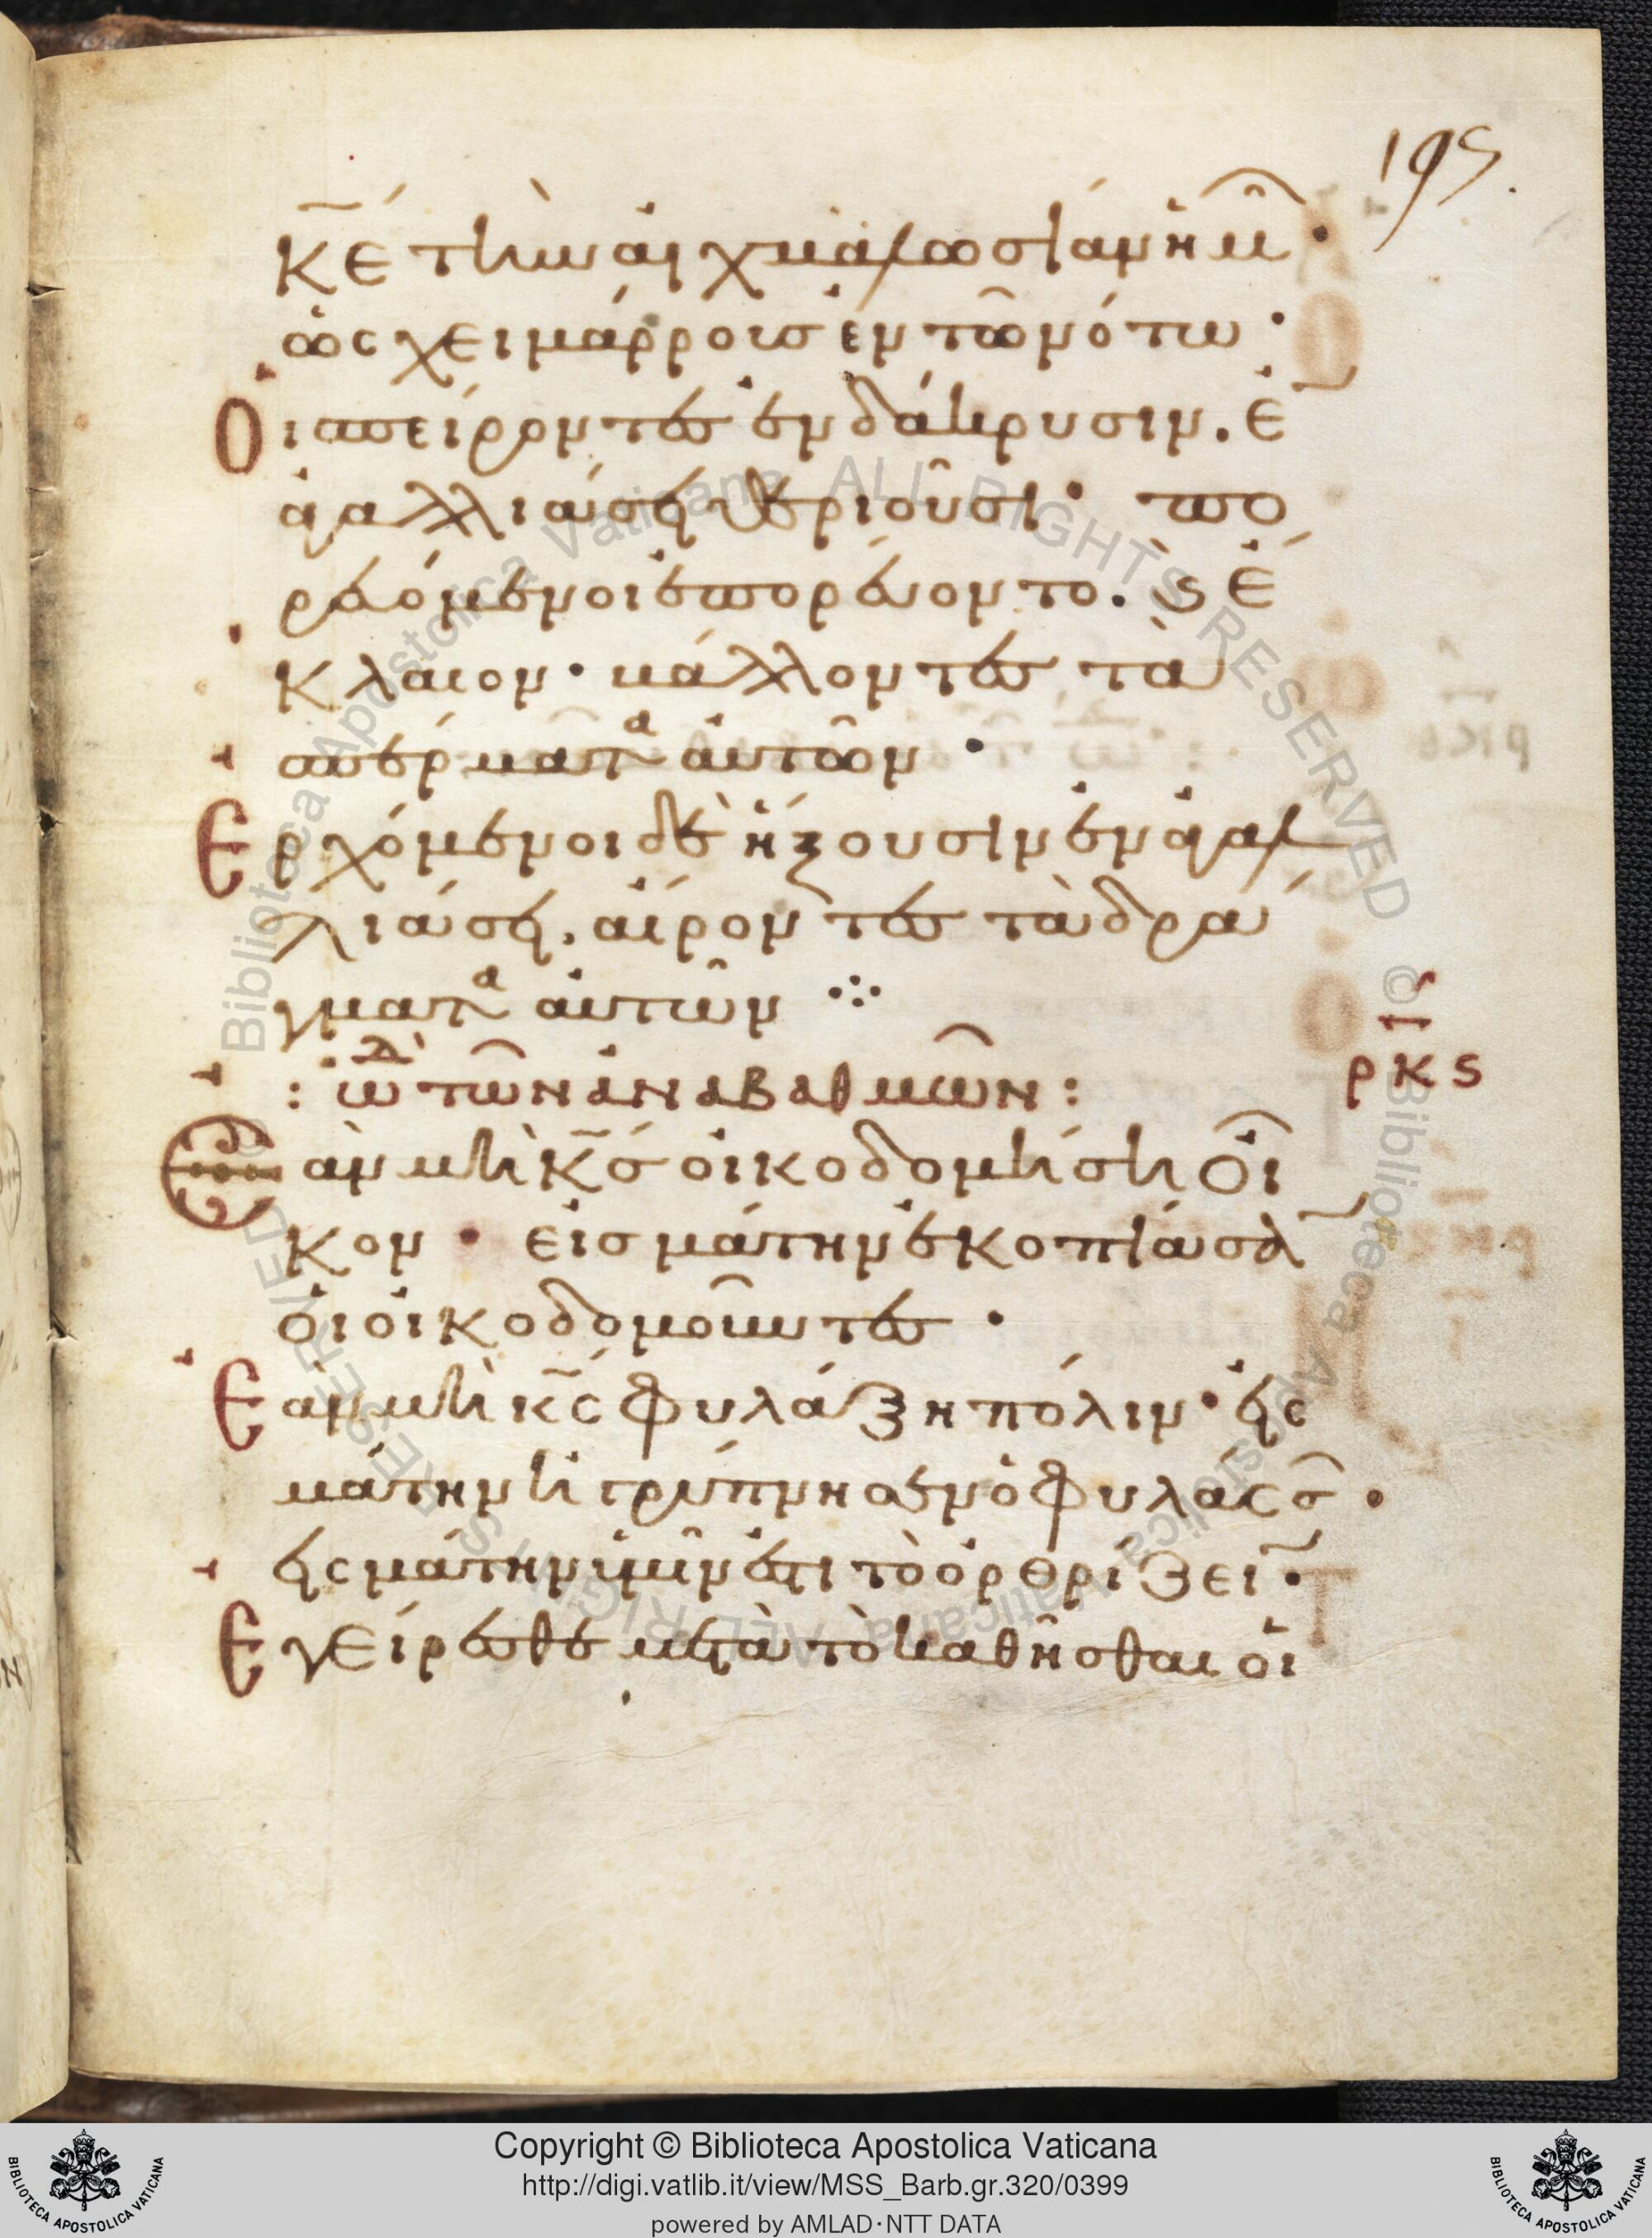 195.
κ̅ε̅ τὴν αἰχμαλωσίαν ἡμῶ̅ ·
ὡς χειμάρρους ἐν τῶ νότω ·
Οι σπείροντες ἐν δάκρυσιν. ἐ̅
ἀγαλλιάσει θεριοῦσι · πο
ρευόμενοι ἐπορεύοντο. ϛ̀ ἔ
κλαιον · βάλλοντες τὰ
σπέρματα αὐτῶν ·
Ερχόμενοι δὲ ἥξουσιν ἐν ἀγαλ
λιάσει, αἴροντες τὰ δρά
γματα αὐτῶν ⁘
: ὠδ̀ τῶν ἀναβαθμῶν :
ρκϛ
Εὰν μὴ κ̅ς̅ οἰκοδομήση οἶ
κον · εἰς μάτην ἐκοπίασα̅
οἱ οἰκοδομοῦντες ·
Εὰν μὴ κ̅ς̅ φυλάξη πόλιν · εἰς
μάτην ἠγρύπνησεν ὁ φυλάσσ̅ ·
εἰς μάτην ὑμῖν ἐστι τὸ ὀρθρίζει̅ ·
Εγείρεσθε μετὰ τὸ καθῆσθαι οἱ
Biblioteca Apostolica Vaticana ALL RIGHTS RESERVED ©
Copyright © Biblioteca Apostolica Vaticana
http://digi.vatlib.it/view/MSS_Barb.gr.320/0399
powered by AMLAD·NTT DATA
BIBLIOTECA APOSTOLICA VATICANA
BIBLIOTECA APOSTOLICA VATICANA